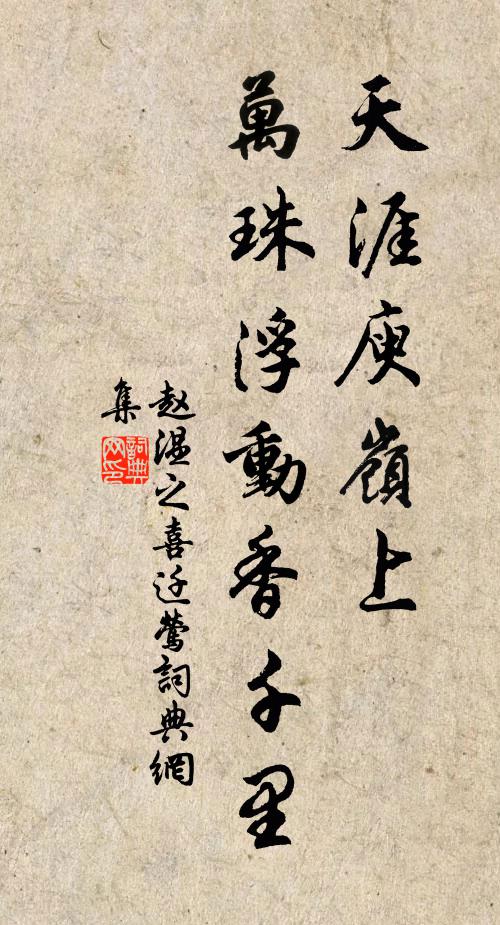 天涯庾嶺上
萬珠浮動香千里
赵温之喜迁鶯詞典網
集
詞典
网印